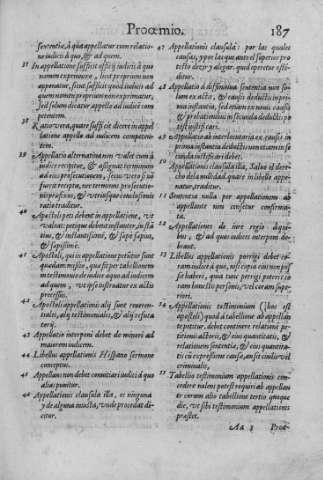 Proœmio. 187
sententia, à qua appellatur cum relatio-
ne iudicis à quo, & ad quem.
37 In appellatione sufficit offerij iudicis à quo
nomen exprimere, licet proprium non
apperatur, sicut sufficit quod iudicis ad
quem nomen proprium non exprimatur,
sed solum dicatur appello ad iudicem com-
petentem.
38 Ratio vera, quare sufficit dicere in appel-
latione appello ad iudicem competen-
tem.
39 Appellatio alternatiua non valet cum à
iudice recipitur, & assignat terminum
ad eius prosecutionem, secus vero si no
fuerit recepta, nec terminus prosecutio-
nis præfixus, & verius quæ conclusionis
ratio traditur.
40 Apostoli peti debent in appellatione, vt
valeat: petique debent instanter, instã-
tius, & instantissimè, & sæpe sæpius,
& sæpissimè.
41 Apostoli, qui in appellatione petitur sunt
quædam missiua, quæ fit per tabellionem
in testimonium de iudice à quo ad iudicem
ad quem, vt ipse instruatur ex actis
processus.
42 Apostoli appellationis alij sunt reueren-
tiales, alij testimoniales, & alij refuta-
torij.
43 Appellatio interponi debet de minori ad
maiorem iudicem.
44 Libellus appellationis Hispano sermone
conceptus.
45 Appellans non debet conuitiari iudici à quo
alias punitur.
46 Appellationis clausula illa, es ninguna
y de alguna injusta, vnde procedat di-
citur.
47 Appellationis clausula: por las quales
causas, y por las que ante el superior pro
testo dezir y alegar. quid operetur osté-
ditur.
48 Appellatio à diffinitiua sententia non so-
lum ex actis, & causis deductis in pri-
ma instantia, sed etiam ex nouis causis
& probationibus in secunda deductis po-
test iustificari.
49 Appellatio ab interlocutoria ex causis in
prima instantia deductis non etiam in se
cunda iustificari debet.
50 Appellationis clausula illa, Saluo el dere-
cho de la nulidad. quare in libello appo-
natur, traditur.
51 Sententia nulla per appellationem ab
appellante non censetur confirma-
ta.
52 Appellationes de iure regio diqui-
bus, & ad quos iudices interponi de-
beant.
53 Libellus appellationis porrigi debet co-
ram iudice à quo, nisi copia eius non pos-
sit haberi, quia tunc porrigi poterit co-
ram honestis personis, vel coram supe-
riori.
54 Appellationis testimonium (hoc est
apostoli) quod à tabellione ab appellan-
te petitur, debet continere relatione pe-
titionis actoris, & eius quantitatis, &
relationem sententiæ, & eius quantita-
tis cũ expressione causæ, an sit ciuilis vel
criminalis.
55 Tabellio testimonium appellationis con-
cedere nolens potest requiri ab appellan-
te coram alio tabellione tertio quoque
die, vt sibi testimonium appellationis
præstet.
Aa 2 Proœ-